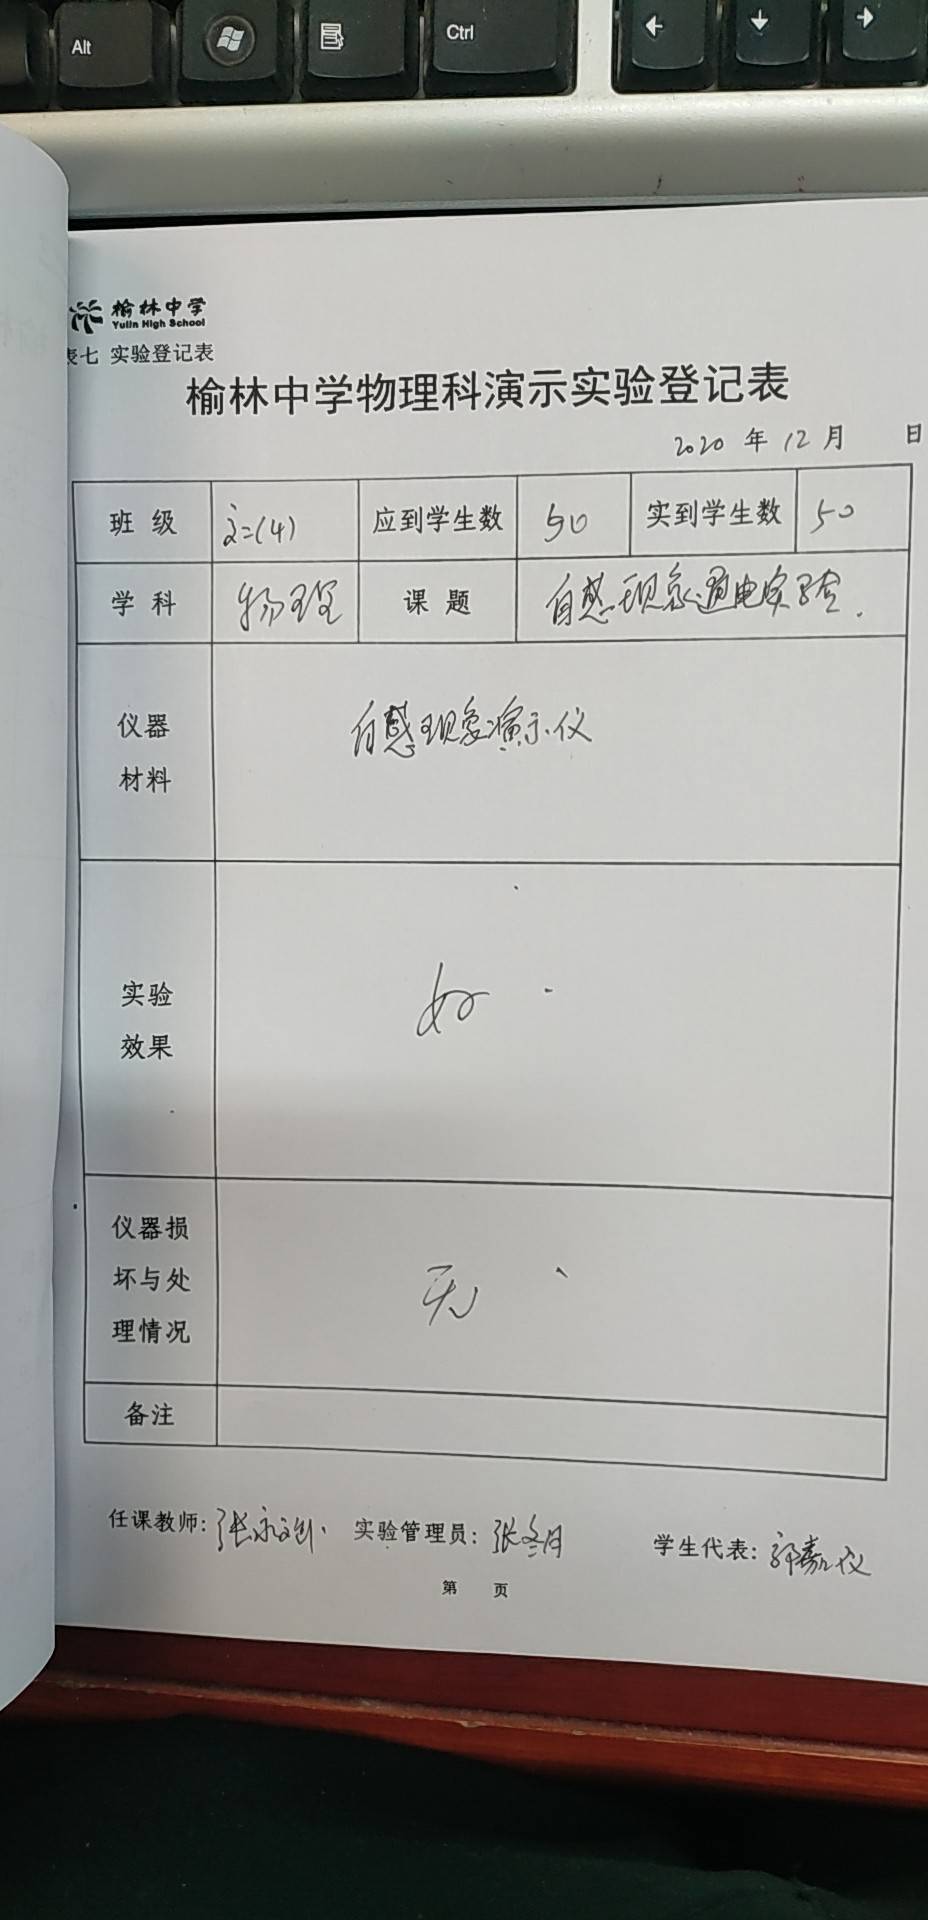 Alt
Ctrl
榆林中学
Yulin High School
表七 实验登记表
榆林中学物理科演示实验登记表
2020 年 12 月 日
班 级 高二(4) 应到学生数 50 实到学生数 50
学 科 物理 课 题 自感现象通电实验.
仪器
材料
自感现象演示仪
实验
效果
好.
仪器损
坏与处
理情况
无、
备注
任课教师: 实验管理员: 张冬月 学生代表: 郭嘉仪
第 页